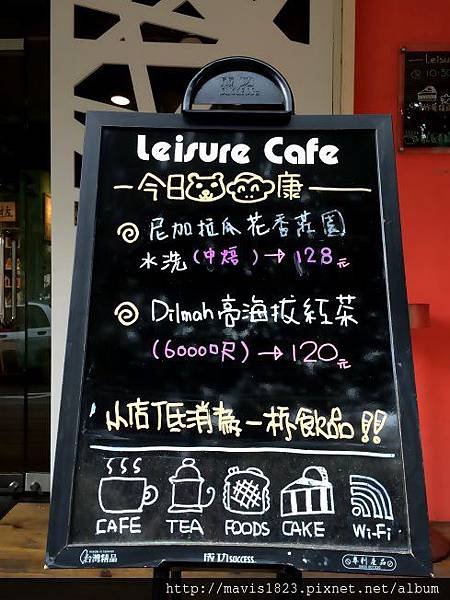 成功
SUCCESS
Leisure Cafe
今日 康
尼加拉瓜花香莊園
水洗(中焙)→128元
Dilmah高海拔紅茶
(6000呎)→120元
本店低消為一杯飲品!!
CAFE TEA FOODS CAKE Wi-Fi
台灣精品 成功SUCCESS. 專利產品
Leisu
10:30
http://mavis1823.pixnet.net/album